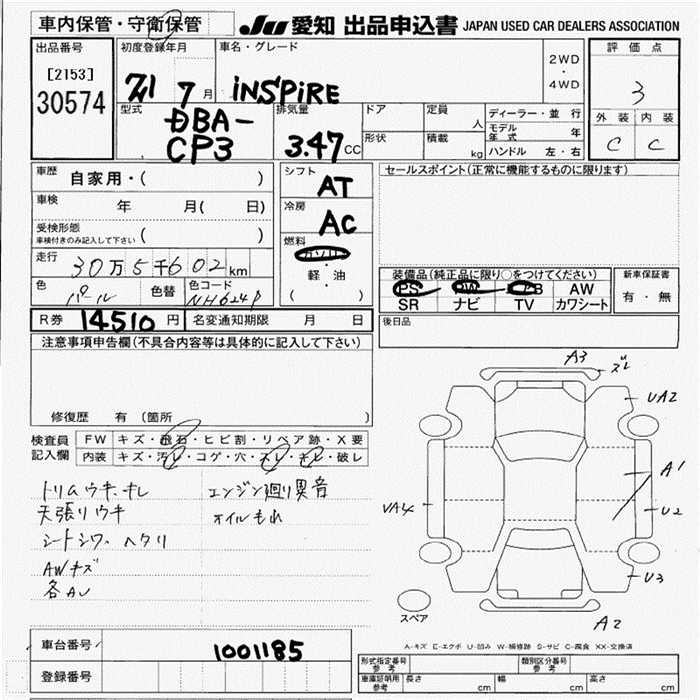 車内保管・守衛保管 JU 愛知 出品申込書 JAPAN USED CAR DEALERS ASSOCIATION
出品番号 初度登録年月 車名・グレード 評価点
[2153] 2WD
・
30574 21 7月 iNSPiRE 4WD 3
型式 排気量 ドア 定員 人 ディーラー・並行 外装 内装
DBA-
CP3 3.47CC 形状 積載 kg モデル年式 年 C C
ハンドル 左・右
車歴 自家用・( ) シフト AT セールスポイント(正常に機能するものに限ります)
車検 年 月( 日) 冷房 AC
受検形態
車検付きのみ記入して下さい ( ) 燃料 ガソリン
・
走行 30万5千602km 軽・油
( )
装備品(純正品に限り○をつけてください) 新車保証書
色 パール 色替 色コード NH624P PS PW AW 有・無
SR ナビ TV カワシート
R券 14510円 名変通知期限 月 日 後日品
注意事項申告欄(不具合内容等は具体的に記入して下さい)
修復歴 有(箇所 )
検査員 FW キズ・飛石・ヒビ割・リペア跡・X要
記入欄 内装 キズ・汚レ・コゲ・穴・スレ・キレ・破レ
トリムウキ、キレ エンジン廻り異音
天張りウキ オイルもれ
シートシワ、ヘタリ
AWキズ
各AU
A3 ズレ
UA2
A1
UA4 U2
U3
A2
スペア
A-キズ E-エクボ U-凹み W-補修跡 S-サビ C-腐食 XX-交換済
車台番号 1001185
登録番号
形式指定番号 参考 類別区分番号 参考
車庫証明用 参考 長さ cm 幅 cm 高さ cm